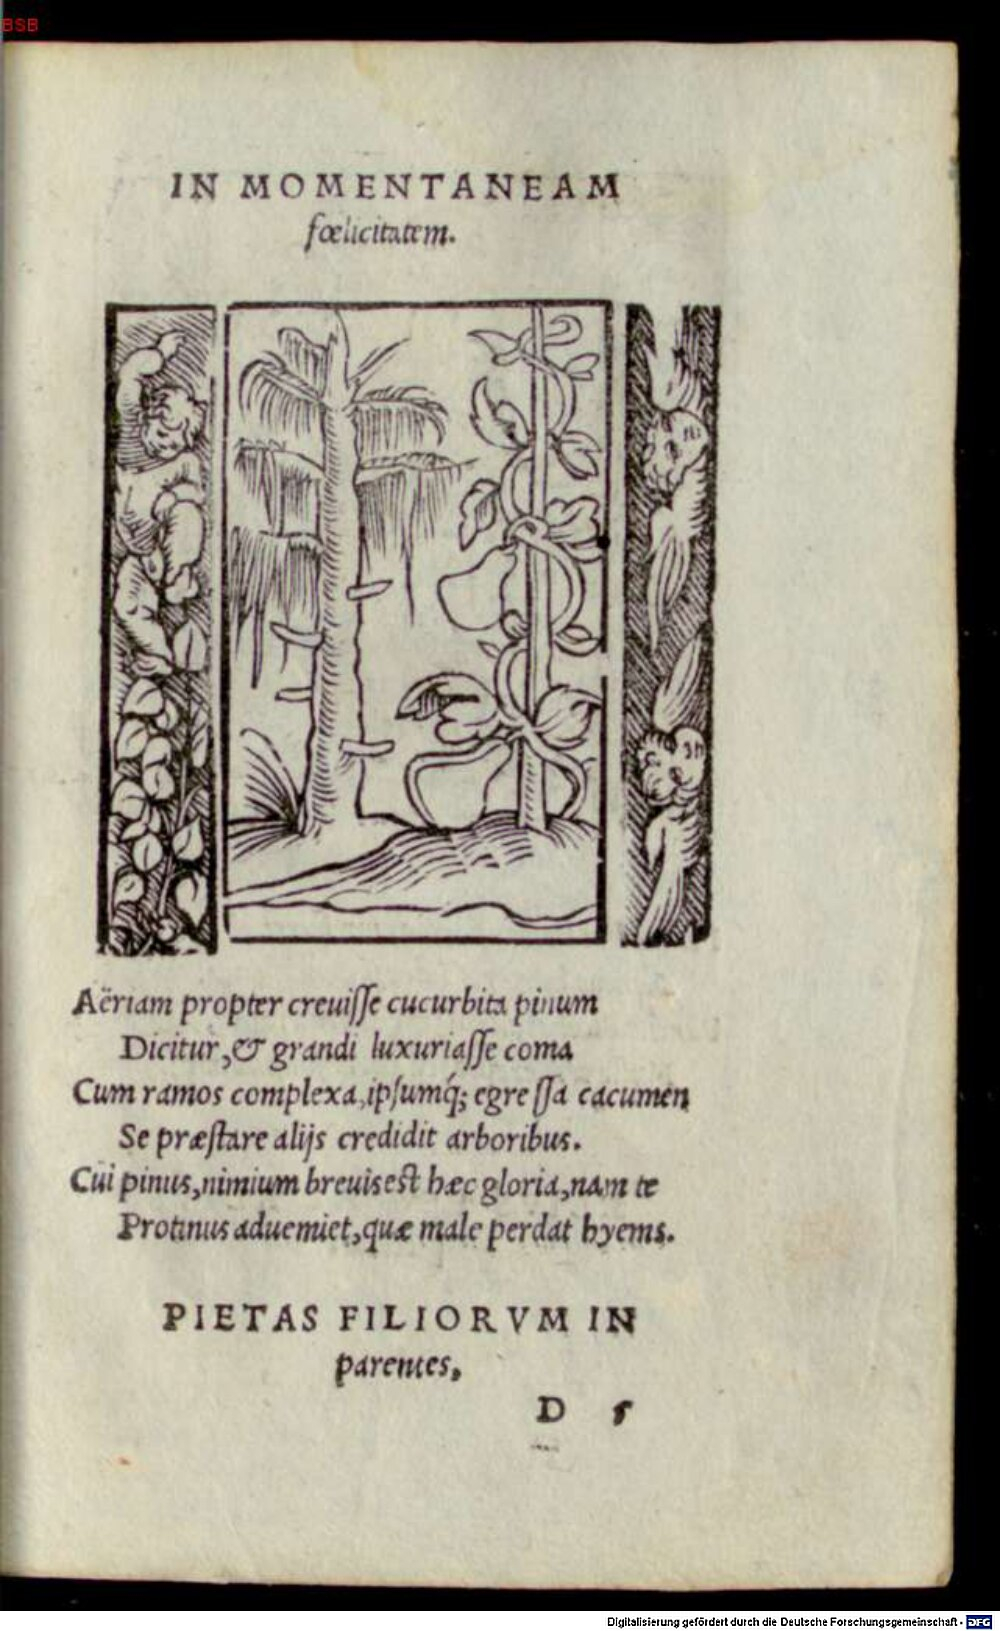 BSB
IN MOMENTANEAM
fœlicitatem.
Aëriam propter creuiſſe cucurbita pinum
Dicitur, & grandi luxuriaſſe coma
Cum ramos complexa, ipſumq́; egreſſa cacumen
Se præſtare alijs credidit arboribus.
Cui pinus, nimium breuis est hæc gloria, nam te
Protinus adueniet, quæ male perdat hyems.
PIETAS FILIORVM IN
parentes,
D 5
Digitalisierung gefördert durch die Deutsche Forschungsgemeinschaft - DFG